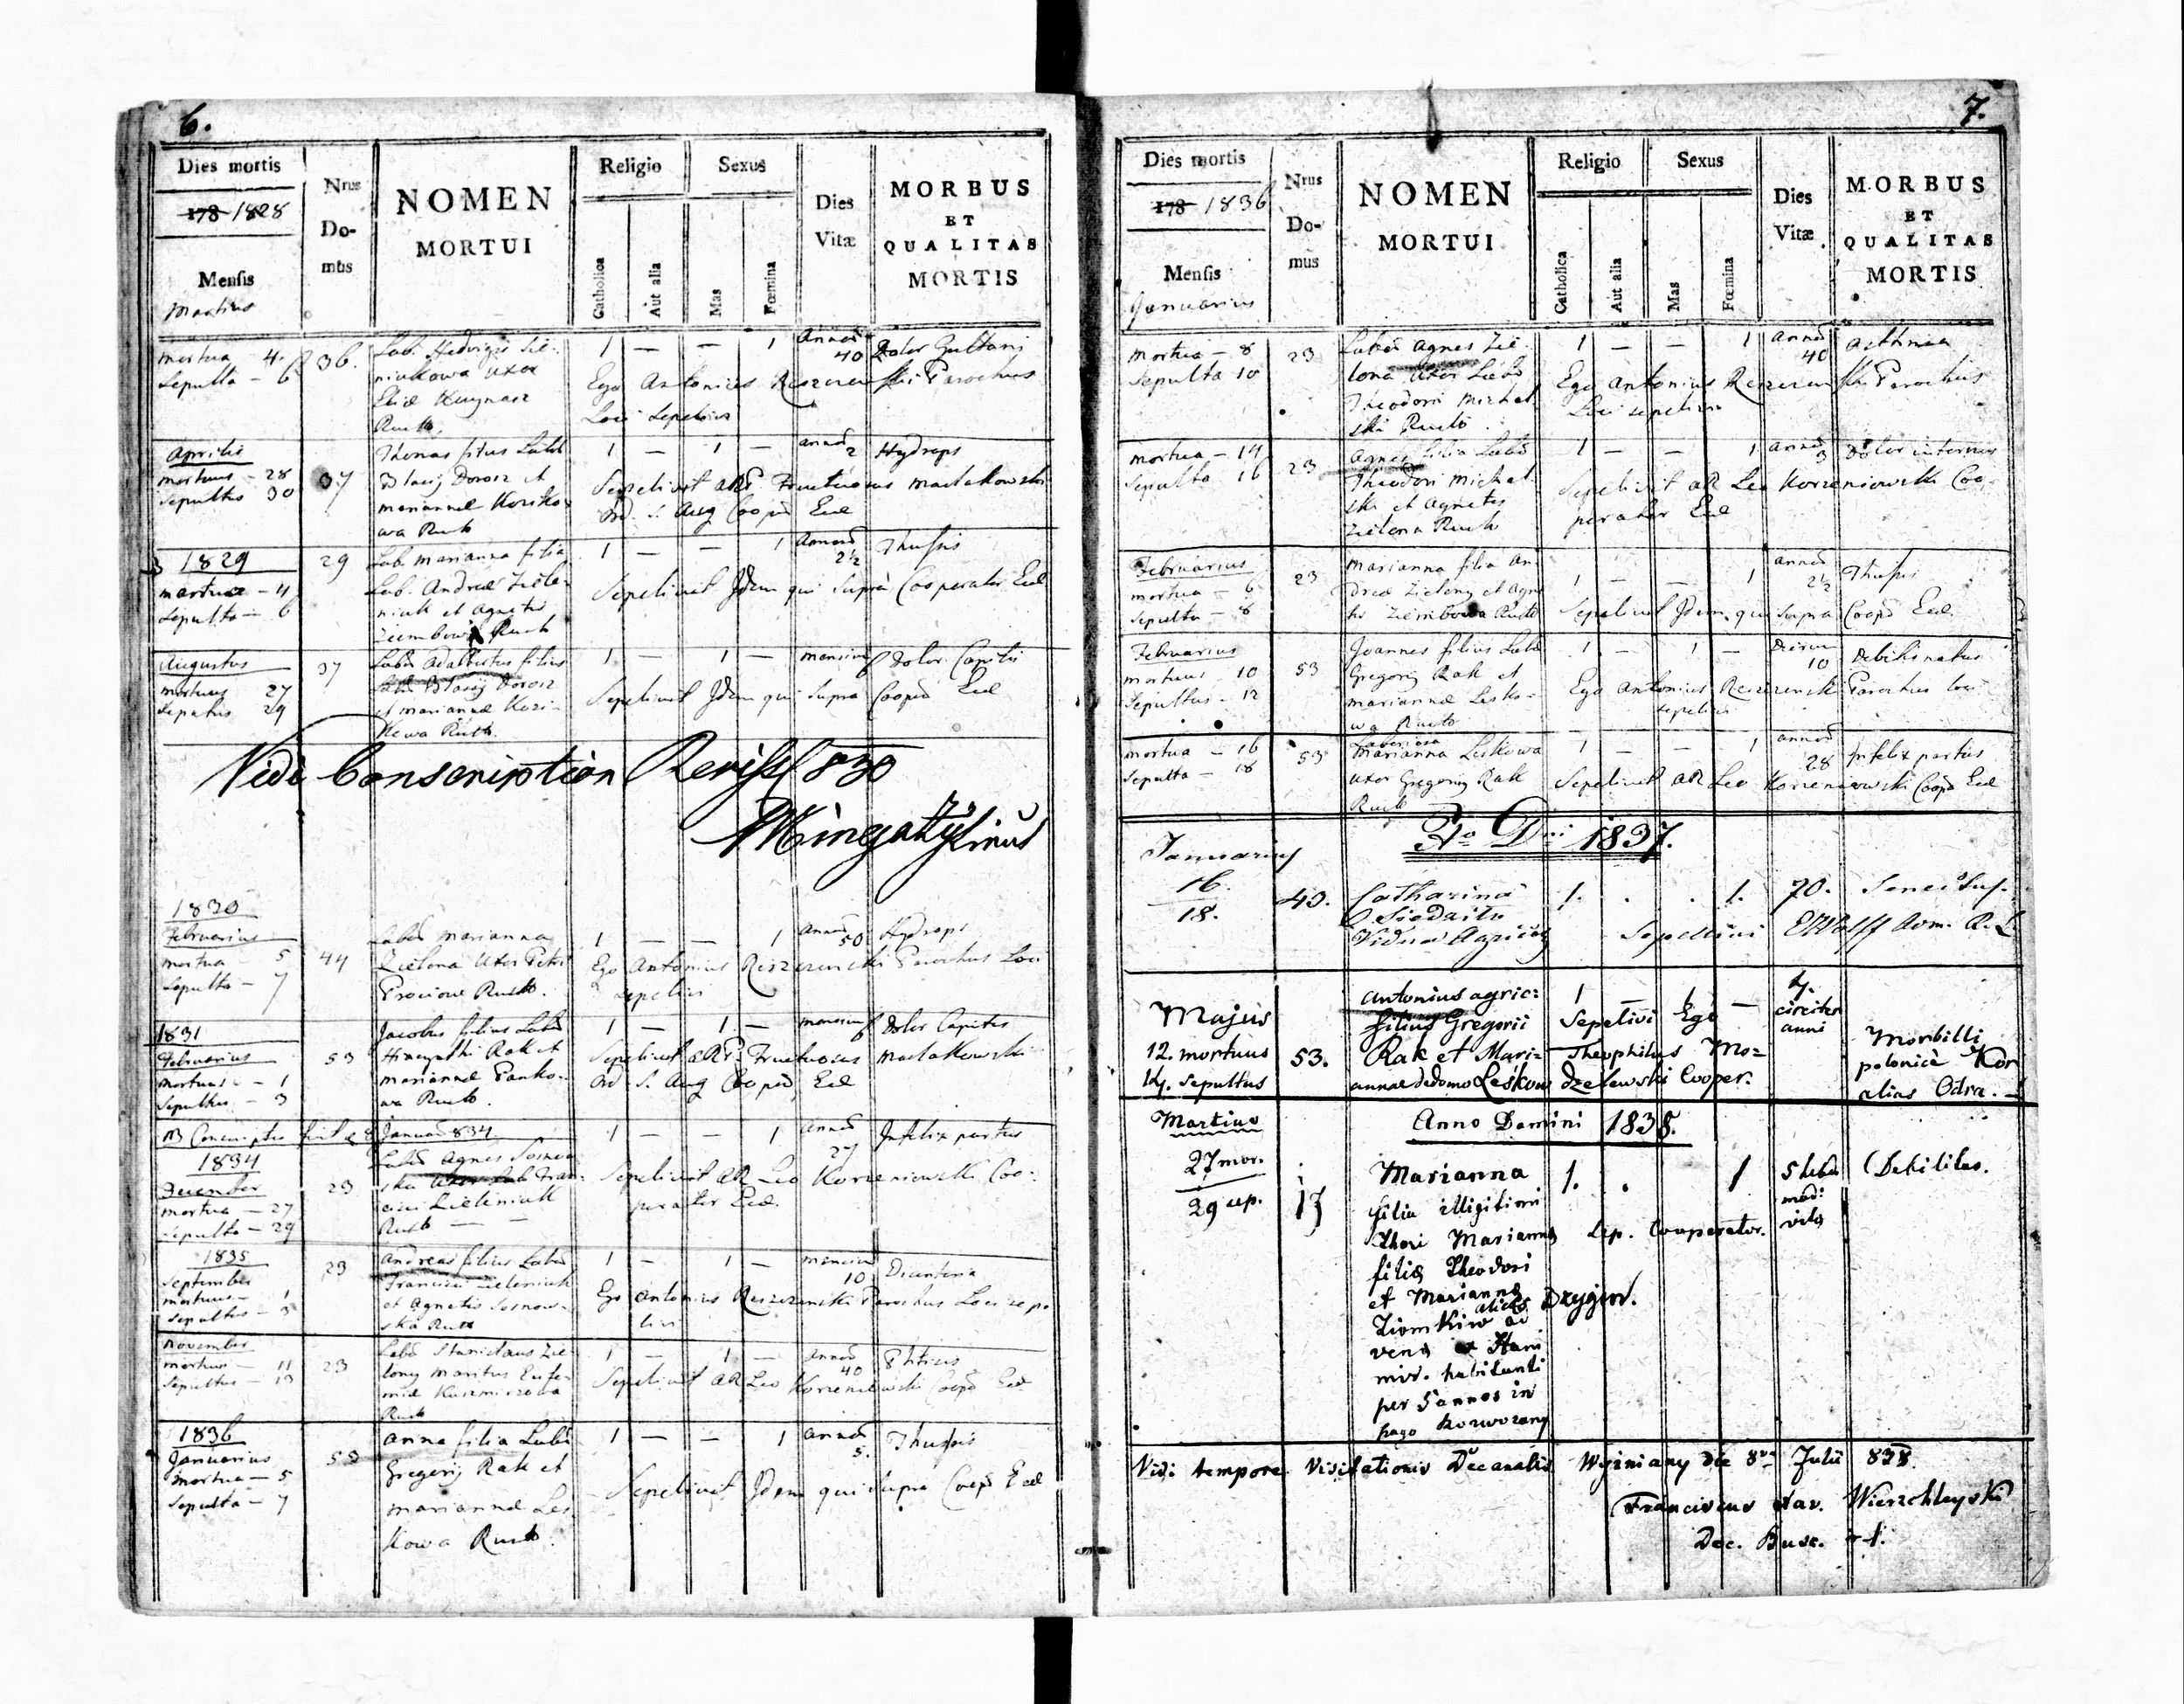 6.
Dies mortis
178 1828
Mensis
Martius
Nrus
Do-
mus
NOMEN
MORTUI
Religio
Catholica
Aut alia
Sexus
Mas
Fœmina
Dies
Vitæ
MORBUS
ET
QUALITAS
MORTIS
mortua 4.
Sepulta - 6
36.
Lab. Hedvigis Zie-
niukowa Uxor
Ruth.
1 — — 1
Annor
40
Dolor
Ego Antonius Parochus
Loci Sepelivi
Aprilis
mortuus - 28
Sepultus 30
37
Thomas filius Lab
Blasij Dorosz et
mariannæ Kozîko-
wa Ruth
1 — 1 —
annor
2
Hydrops
Sepelivit ARP Fructuosus Maslakowski
Ord. S. Aug Coopr Eccl
1829
mortua - 4
Sepulta - 6
29
Lab. Marianna filia
Lab. Andreæ Ziele-
niuk et Agnetis
Ziembowa Ruth
1 — — 1
Annor
2½
Thussis
Sepelivit Idem qui Supra Cooperator Eccl
Augustus
mortuus 27
Sepultus 29
37
Labor Adalbertus filius
Labor Blasij Dorosz
et mariannæ Kozi-
kowa Ruth.
1 — 1 —
mensium
6
Dolor Capitis
Sepelivit Idem qui Supra Coopr Eccl
Vidi Conscription Reviss 830
1830
Februarius
mortua - 5
Sepulta - 7
44
Labor Marianna
Zielona Uxor Petri
Ruth.
1 — — 1
Annor
50
Hydrops
Ego Antonius Parochus Loci
sepelivi
1831
Februarius
mortuus - 1
Sepultus - 3
53
Jacobus filius Labor
Hiacynthi Rak et
mariannæ Panko-
wa Ruth.
1 — 1 —
mensium
6
Dolor Capitis
Sepelivit ARP Fructuosus Maslakowski
Ord S. Aug Coopr Eccl
1834
December
mortua - 27
Sepulta - 29
23
Labor Agnes Sosnow
ska Uxor Lab Fran-
cisci Zieleniuk
Ruth — —
1 — — 1
Annor
27
Infelix partus
Sepelivit AR Leo Korzeniowski Coo-
perator Eccl.
1835
September
mortuus - 1
Sepultus - 3
23
Andreas filius Labor
Francisci Zieleniuk
et Agnetis Sosnow-
ska Ruth
1 — 1 —
mensium
10
Dicenteria
Ego Antonius Parochus Loci sepe
livi
November
mortuus - 11
Sepultus - 13
23
Labor Stanislaus Zie
lony Maritus Eufe-
miæ Kuzmirzowa
Ruth
1 — 1 —
annor
40
Phtisis
Sepelivit AR Leo Korzeniowski Coopr Eccl
1836
Januarius
mortua - 5
Sepulta - 7
53
Anna filia Labor
Gregorij Rak et
mariannæ Les
kowa Ruth.
1 — — 1
annor
5.
Thussis
Sepelivit Idem qui Supra Coopr Eccl
7.
Dies mortis
178 1836
Mensis
Januarius
Nrus
Do-
mus
NOMEN
MORTUI
Religio
Catholica
Aut alia
Sexus
Mas
Fœmina
Dies
Vitæ
MORBUS
ET
QUALITAS
MORTIS
mortua - 8
Sepulta 10
23
Labor Agnes Zie
lona Uxor Labor
Theodori Michal
ski Ruth.
1 — — 1
Annor
40
Asthma
Ego Antonius Parochus
Loci sepelivi
mortua - 14
Sepulta 16
23
Agnes filia Labor
Theodori Michal
ski et Agnetis
Zielona Ruth
1 — — 1
annor
3
Dolor internus
Sepelivit AR Leo Korzeniowski Coo-
perator Eccl
Februarius
mortua - 6
Sepulta - 8
23
Marianna filia An
dreæ Zielony et Agne
tis Ziembowa Ruth
1 — — 1
annor
2½
Thussis
Sepelivit Idem qui Supra Coopr Eccl.
Februarius
mortuus 10
Sepultus - 12
53
Joannes filius Labor
Gregorij Rak et
mariannæ Lesko-
wa Ruth
1 — 1 —
Dierum
10
Debilitatus
Ego Antonius Parochus loci
sepelivi
mortua - 16
Sepulta - 18
53
Laboriosa
Marianna Leskowa
Uxor Gregorij Rak
Ruth
1 — — 1
annor
28
Infelix partus
Sepelivit AR Leo Korzeniowski Coopr Eccl
Ao Dni 1837.
Januarius
16.
18.
43.
Catharina
Vidua
1. . . 1.
70.
Sepelivi
Majus
12. mortuus
14. sepultus
53.
Antonius agric:
filius Gregorii
Rak et Mari-
annae dedomo Leskow
1 — 1 —
4.
circiter
anni
Sepelivi Ego
Theophilus Mo-
dzelewski Cooper.
Morbilli
polonicè Kor
alias Odra.
Anno Domini 1838.
Martius
27 mor.
29 sep.
17
Marianna
filia illigitimi
thori Mariannæ
filiæ Theodori
et Mariannæ
Ziomkiw alias Dzygiw.
ad
venæ ex Stani
mir. habitanti
per 5 annos in
pago Korworany
1. . 1
5 hebd
vitæ
Debilitas.
Sep. Cooperator.
Vidi tempore Visitationis Decanalis Wyżniany die 8va Julii 838.
Franciscus Xav. Wierzchleyski
Dec. Busc.